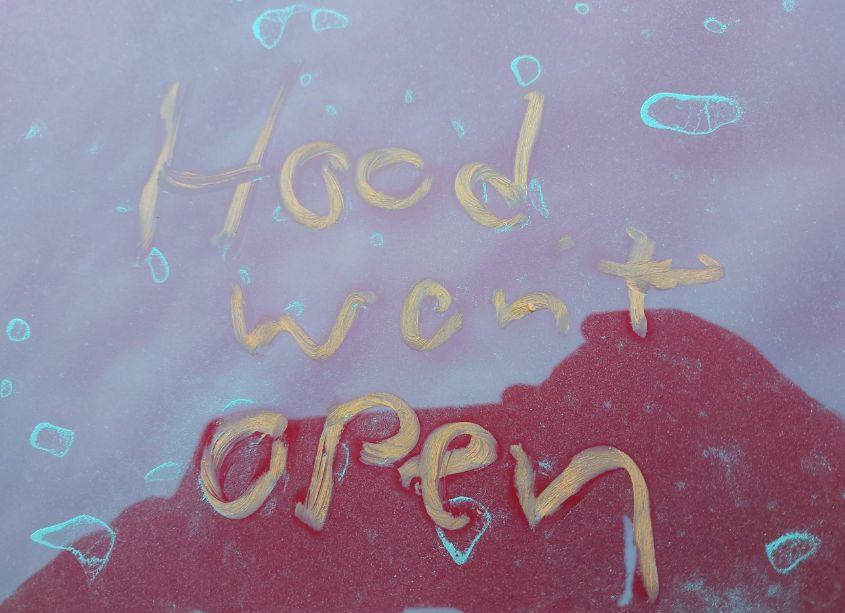 Hood
won't
open